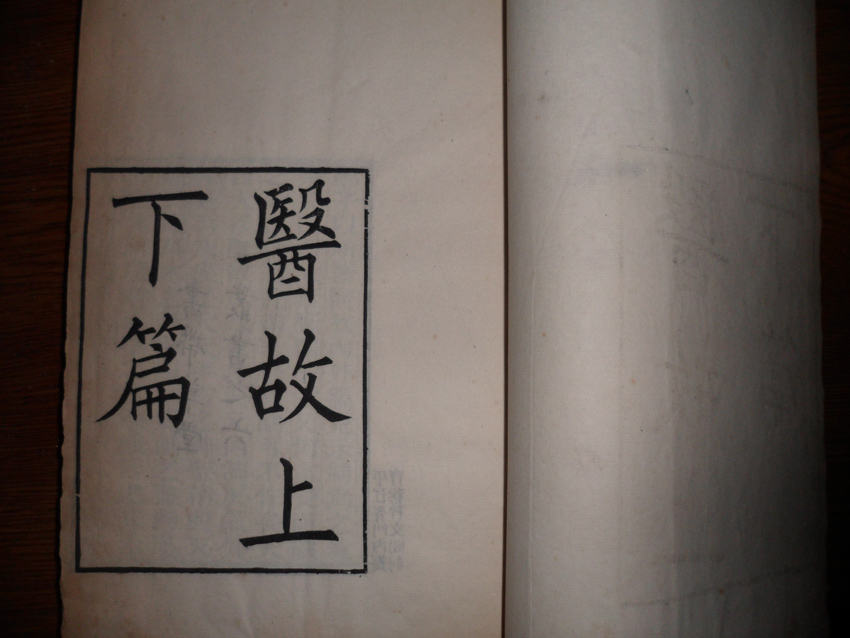 醫故上
下篇